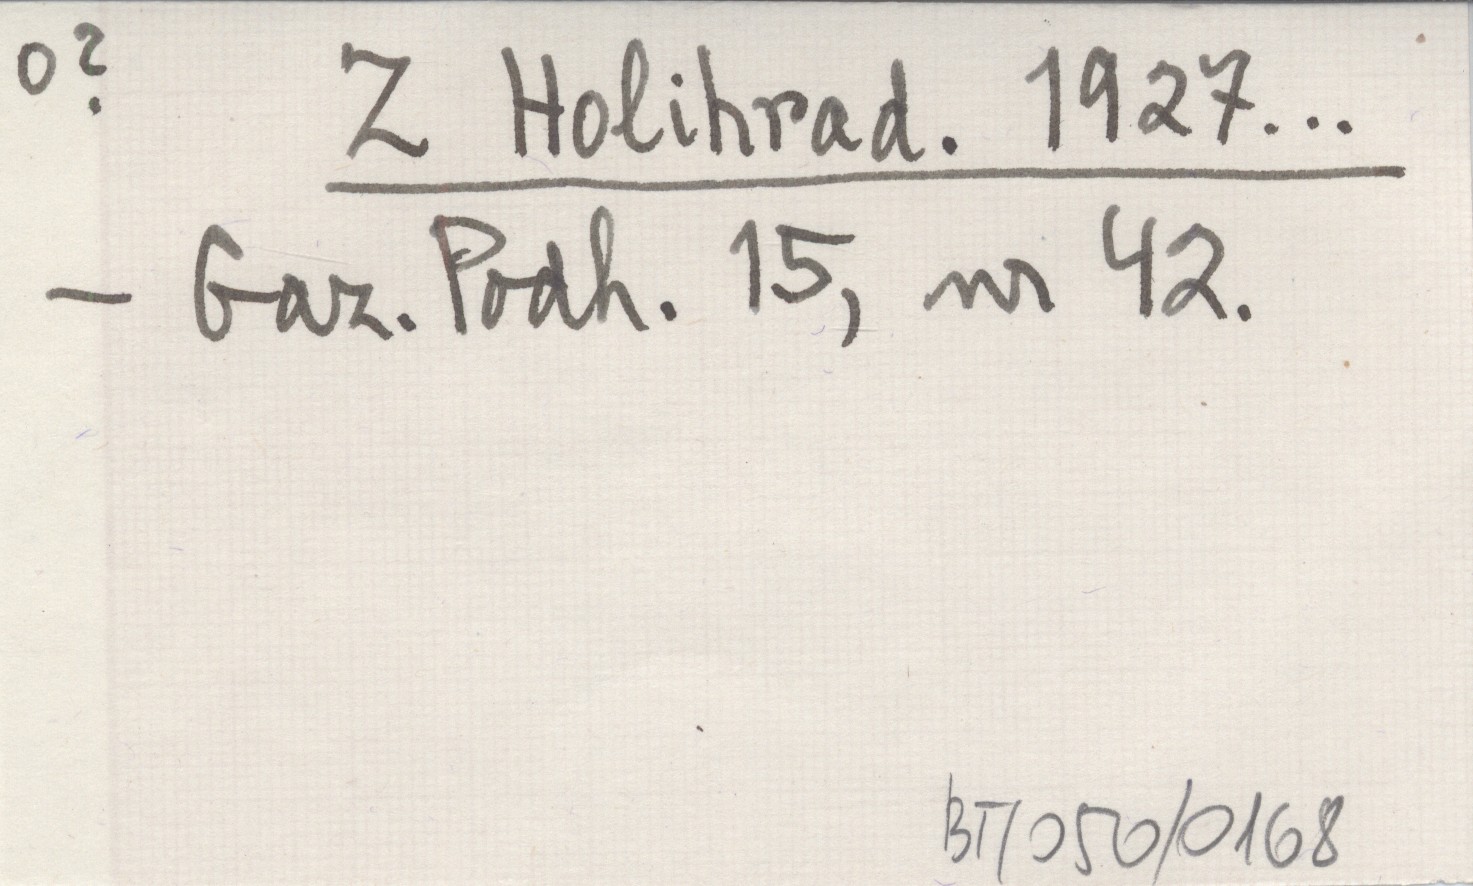 o?
Z Holihrad. 1927...
— Gaz. Podh. 15, nr 42.
BT/050/0168